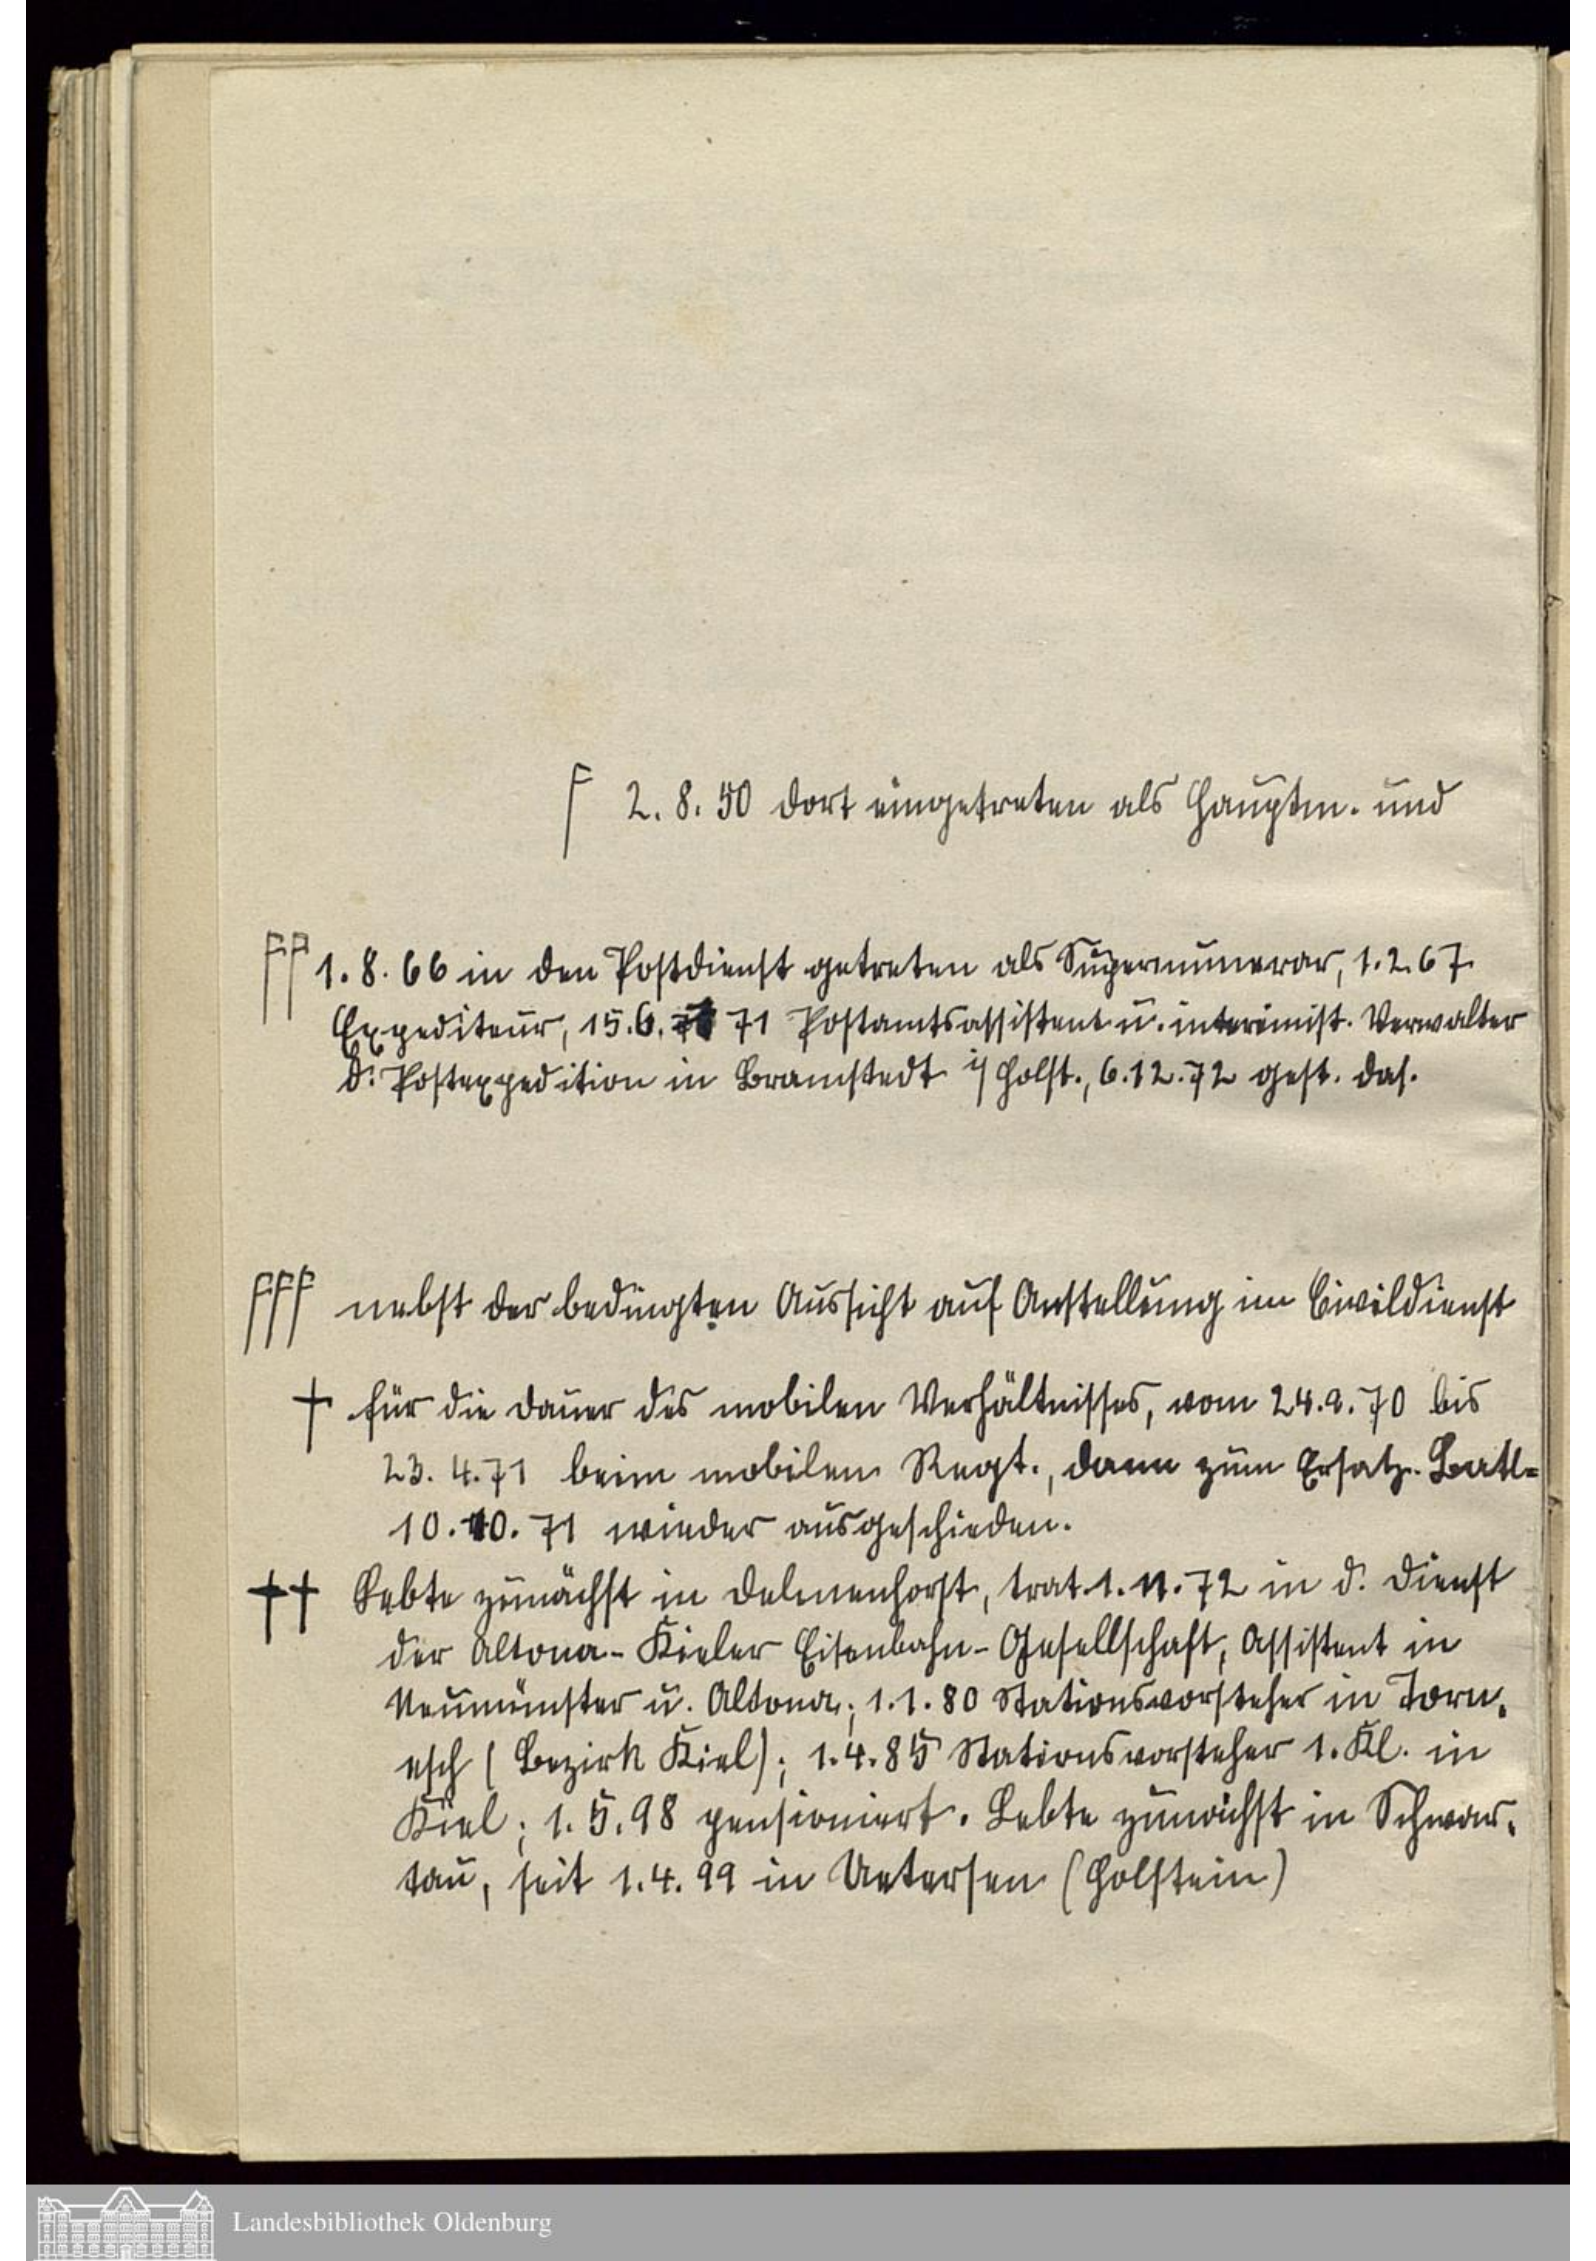 Γ 2. 8. 50 dort eingetreten als Hauptm. und
ΓΓ 1. 8. 66 in den Postdienst getreten als Supernumerar, 1. 2. 67
Expediteur, 15. 6. 71 Postamtsassistent u. interimist. Verwalter
d. Postexpedition in Bramstedt i/Holst., 6. 12. 72 gest. das.
ΓΓΓ nebst der bedingten Aussicht auf Anstellung im Civildienst
† für die Dauer des mobilen Verhältnisses, vom 24. 9. 70 bis
23. 4. 71 beim mobilen Regt., dann zum Ersatz-Batl-
10. 10. 71 wieder ausgeschieden.
†† Lebte zunächst in Delmenhorst, trat 1. 11. 72 in d. Dienst
der Altona-Kieler Eisenbahn-Gesellschaft, Assistent in
Neumünster u. Altona; 1. 1. 80 Stationsvorsteher in Torn-
esch (Bezirk Kiel); 1. 4. 85 Stationsvorsteher 1. Kl. in
Kiel; 1. 5. 98 pensioniert. Lebte zunächst in Schwar-
tau, seit 1. 4. 99 in Uetersen (Holstein)
Landesbibliothek Oldenburg